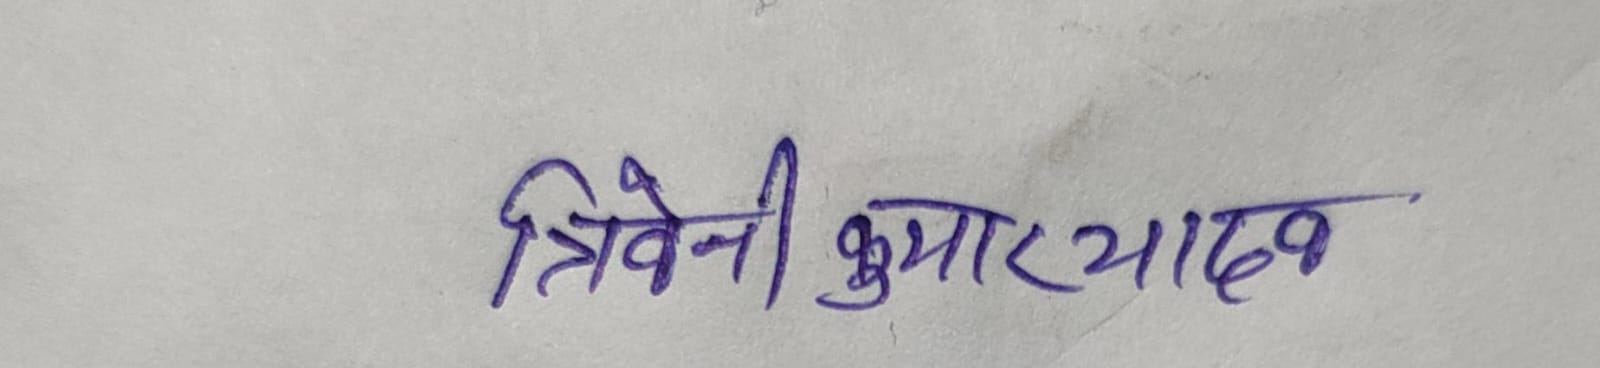 त्रिवेनी कुमार यादव